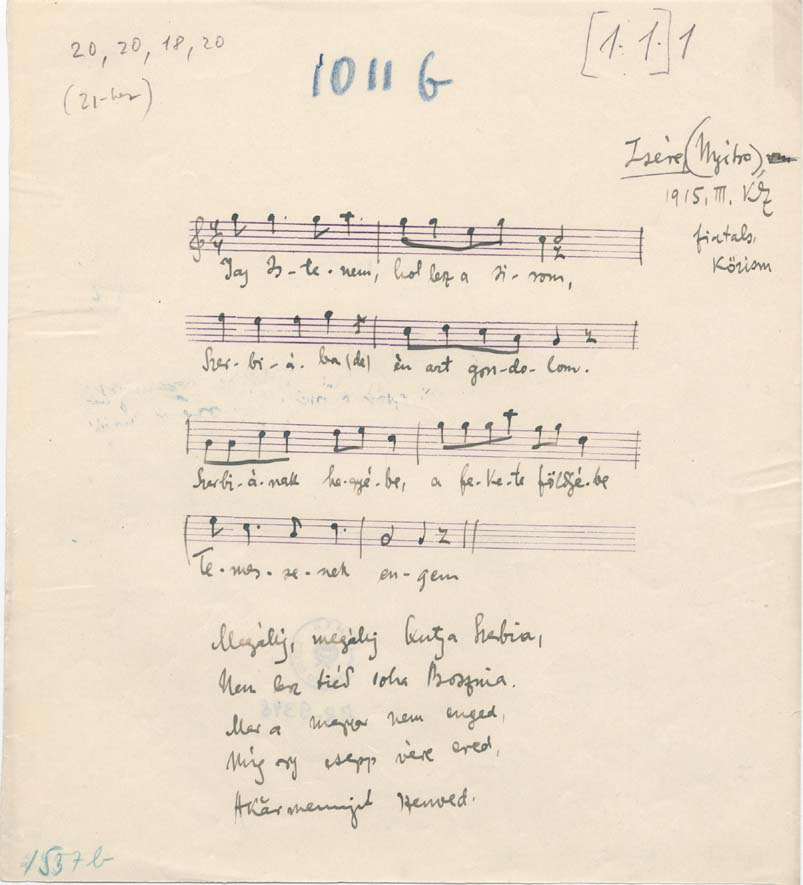 20, 20, 18, 20
(21-hez)
1011 b
[1. 1.] 1
Zsére, (Nyitra)
1915, III. KZ
fiatals,
Körism
Jaj Is-te-nem, hol lesz a si-rom,
Szer-bi-á-ba(de) èn azt gon-do-lom.
Szerbi-á-nak he-gyé-be, a fe-ke-te földjé-be
Te-mes-se-nek en-gem
Megálj, megálj kutya Szerbia,
Nem lesz tiéd soha Bosznia.
Mer a magyar nem enged,
Míg egy csepp vère ered,
Akármennyit szenved.
1537 b